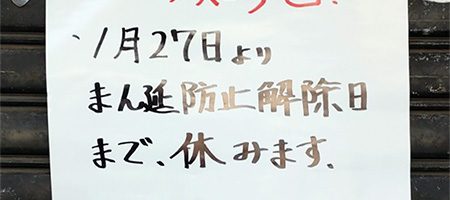 1月27日より
まん延防止解除日
まで、休みます.